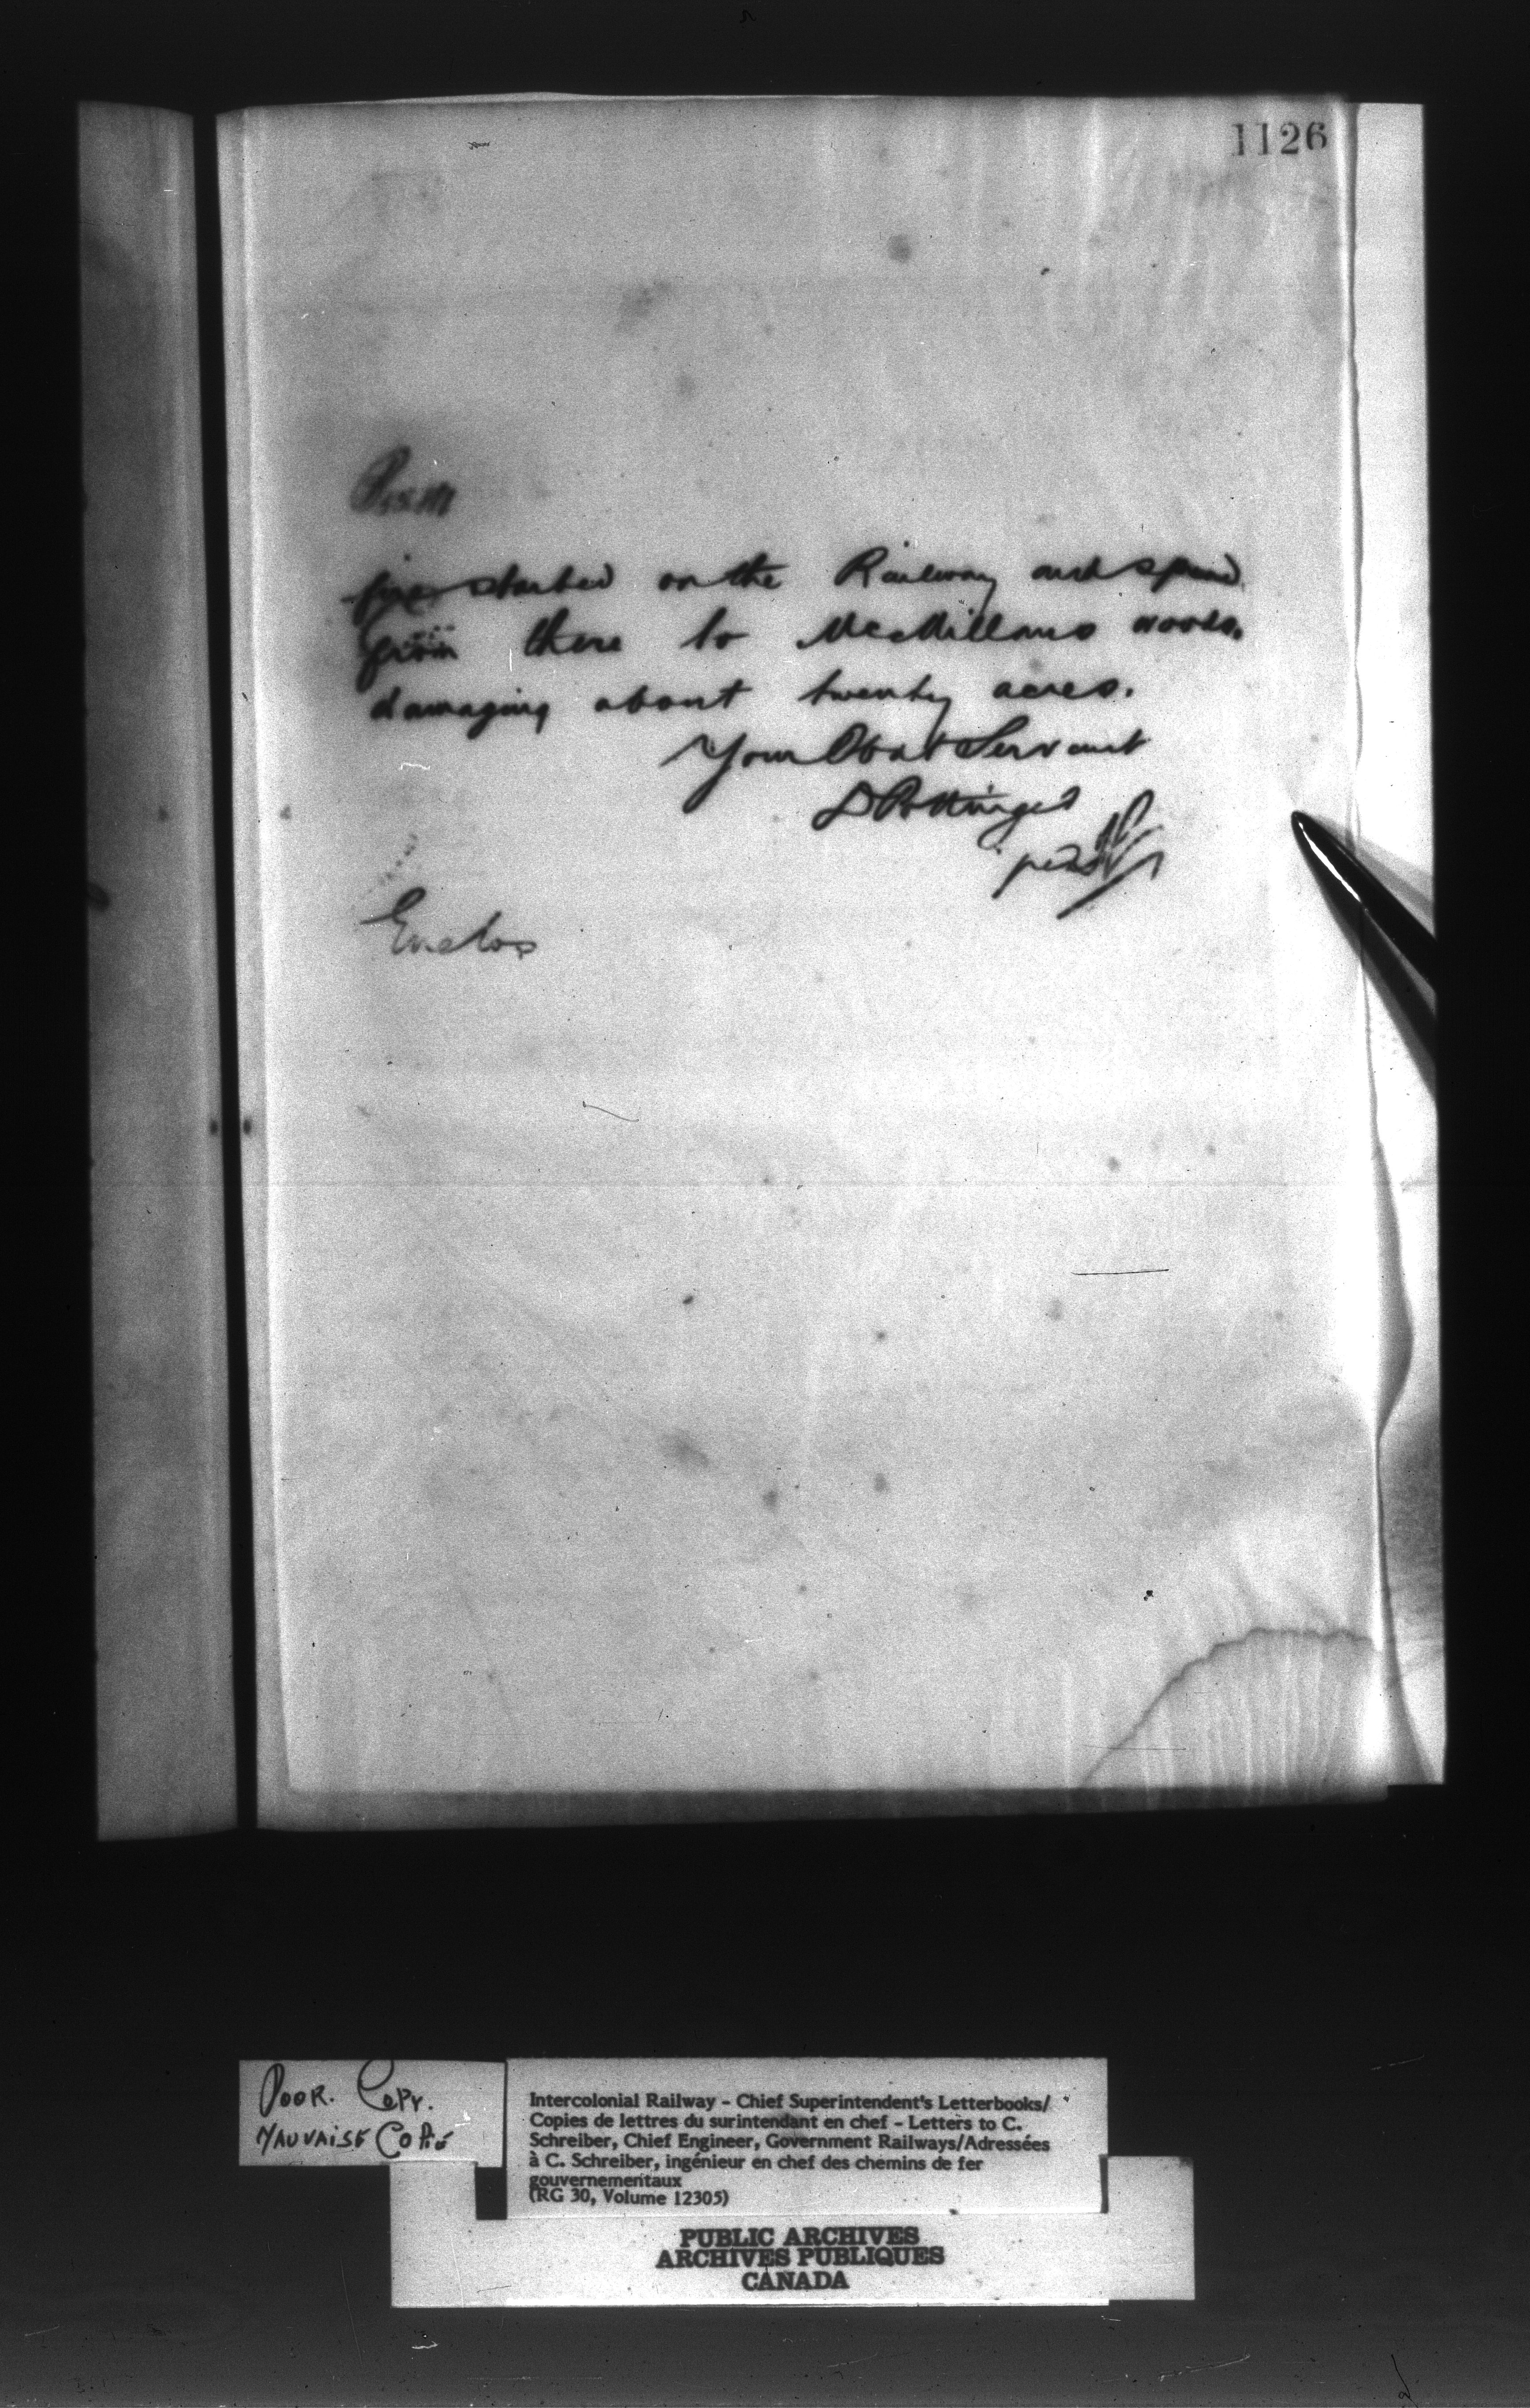 1126
fire started on the Railway and spread
from there to McMillans woods.
damaging about twenty acres.
Your Obdt Servant
D Pottinger
per
Enclos
POOR. COPY.
MAUVAISE COPIE
Intercolonial Railway – Chief Superintendent's Letterbooks/
Copies de lettres du surintendant en chef – Letters to C.
Schreiber, Chief Engineer, Government Railways/Adressées
à C. Schreiber, ingénieur en chef des chemins de fer
gouvernementaux
(RG 30, Volume 12305)
PUBLIC ARCHIVES
ARCHIVES PUBLIQUES
CANADA